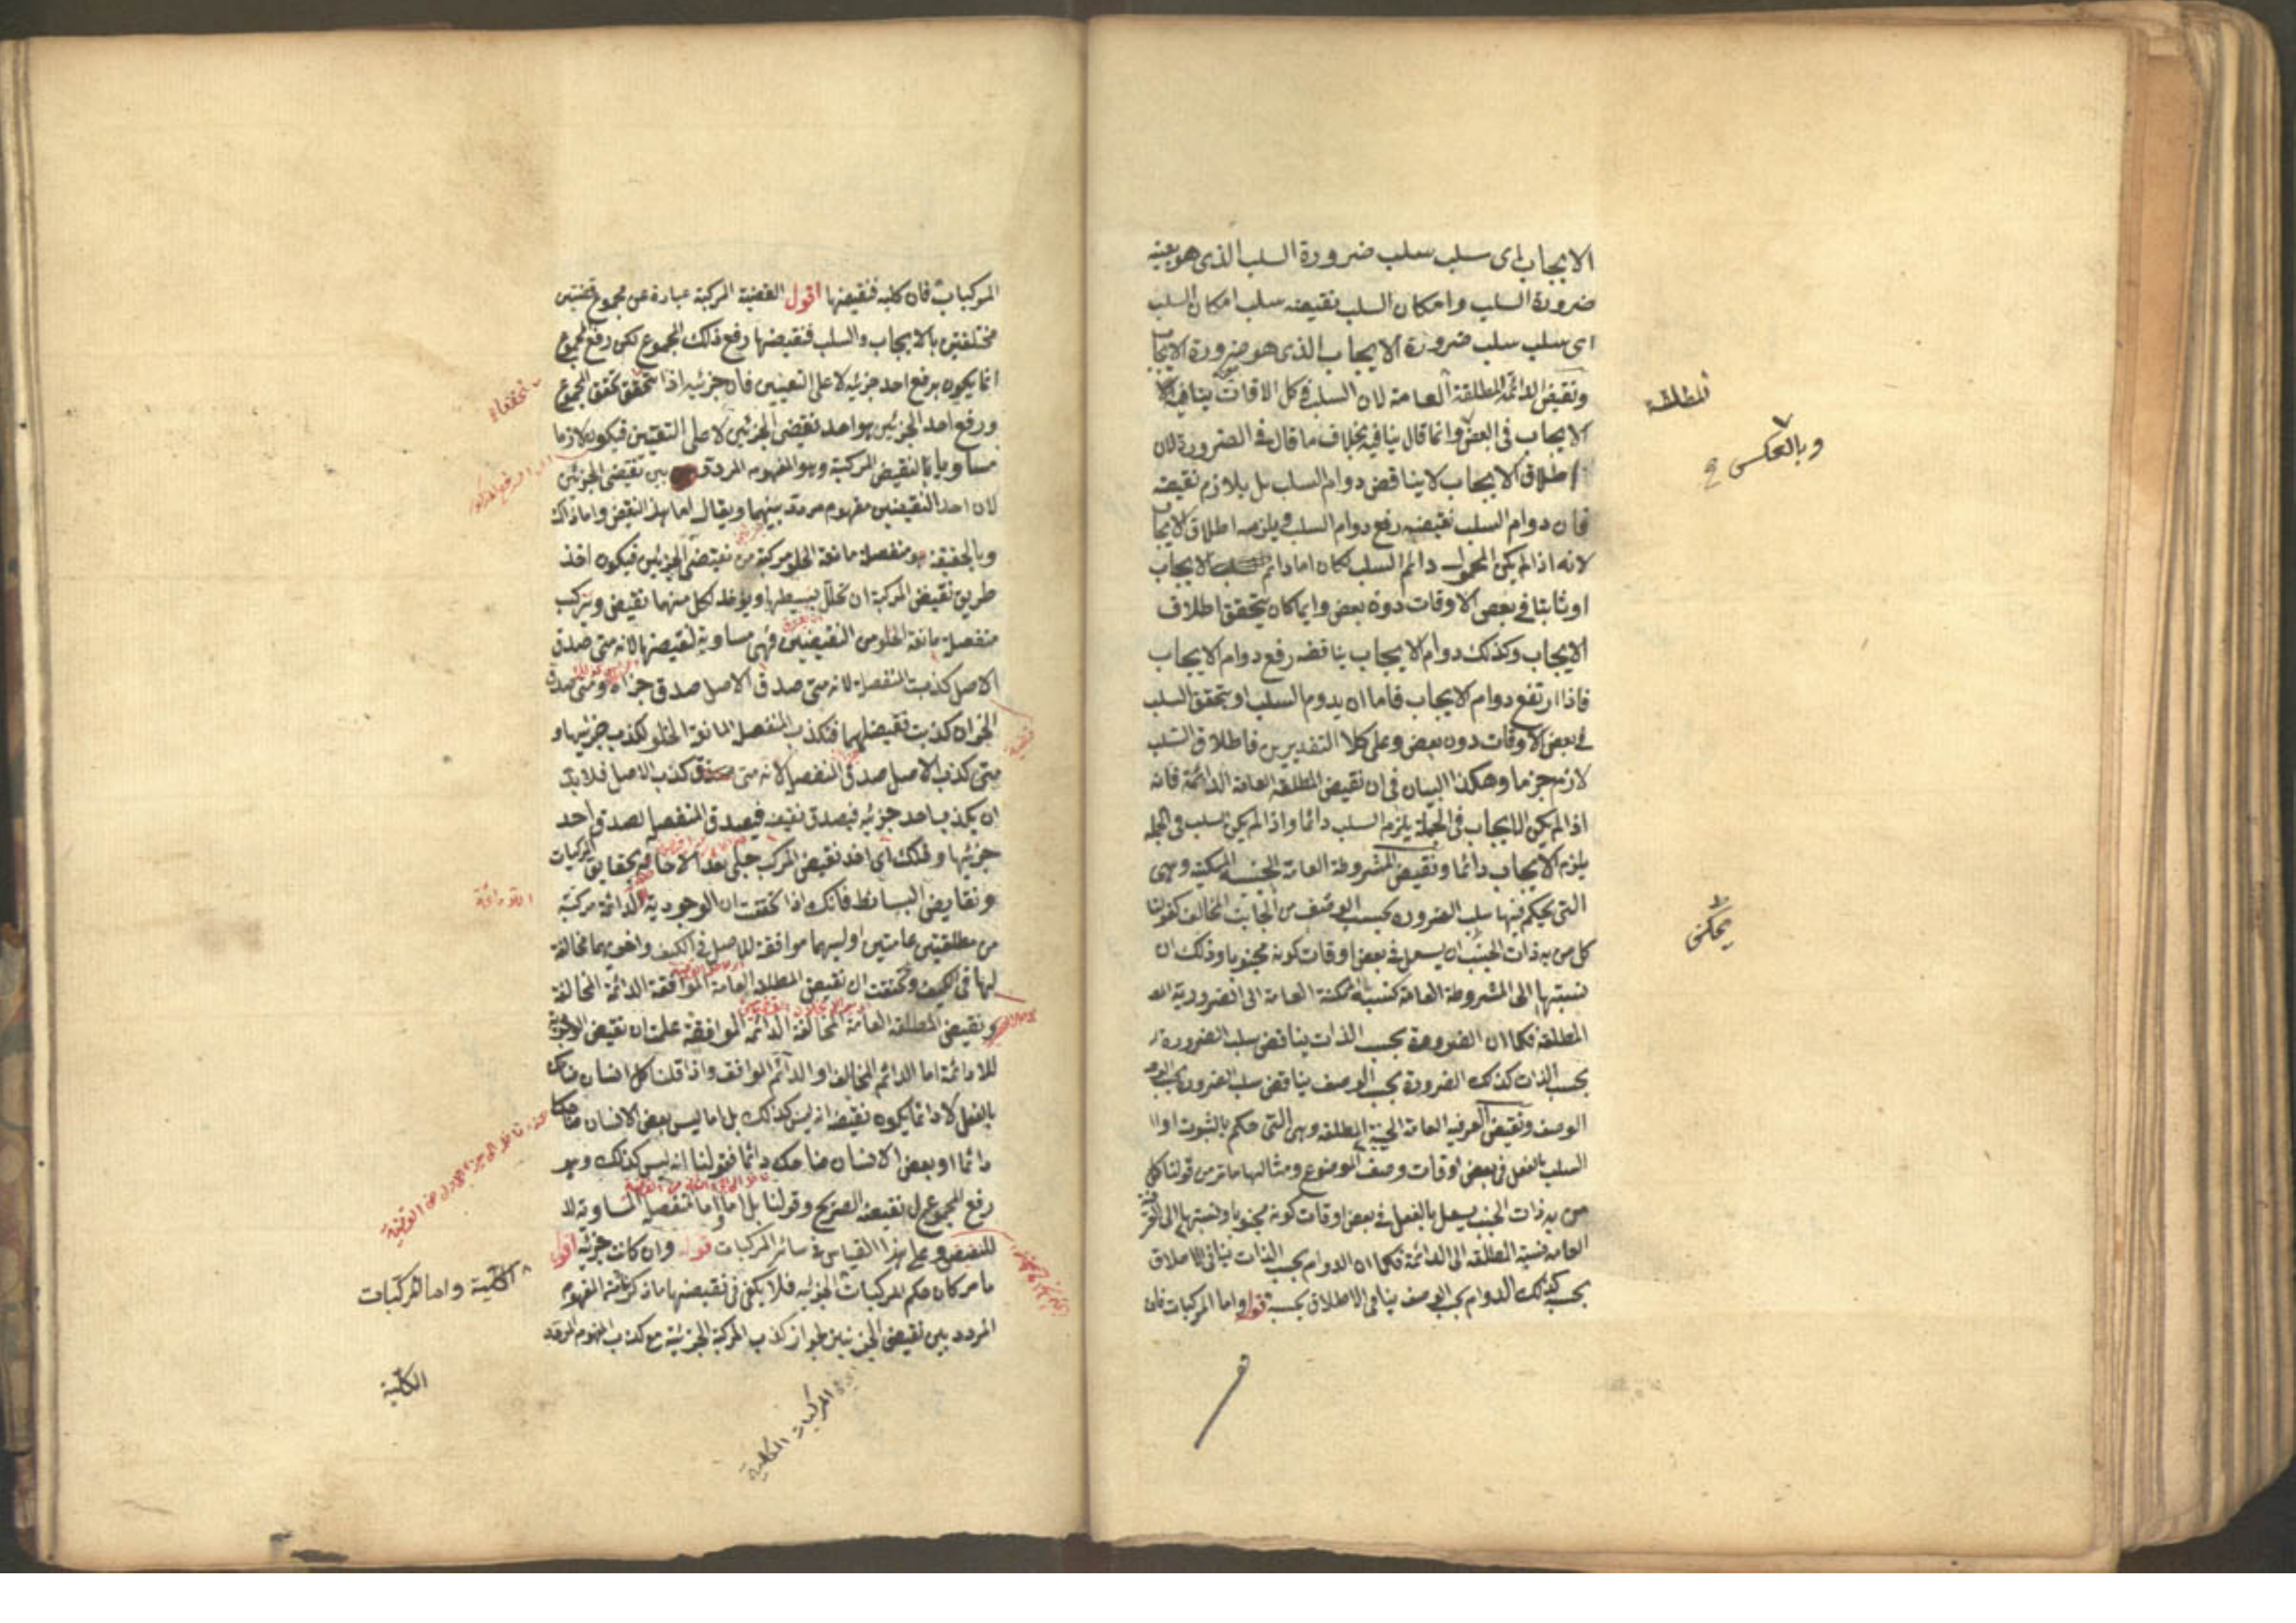 الايجاب اى سلب سلب ضرورة السلب الذى هو بعينه
ضرورة السلب وامكان السلب نقيضه سلب امكان السلب
اى سلب سلب ضرورة الايجاب الذى هو ضرورة الايجاب
ونقيض الدائمة المطلقة العامة لان السلب فى كل الاوقات ينافيه
المطلقة
الايجاب فى البعض وانما قال ينافيه بخلاف ما قال فى الضرورة لان
وبالعكس
اطلاق الايجاب لا يناقض دوام السلب بل يلازم نقيضه
فان دوام السلب نقيضه رفع دوام السلب ويلزمه اطلاق الايجاب
لانه اذا لم يكن المحمول دائم السلب لكان اما دائم الايجاب
او ثابتا فى بعض الاوقات دون بعض وايما كان يتحقق اطلاق
الايجاب وكذلك دوام الايجاب يناقضه رفع دوام الايجاب
فاذا ارتفع دوام الايجاب فاما ان يدوم السلب او يتحقق السلب
فى بعض الاوقات دون بعض وعلى كلا التقديرين فاطلاق السلب
لازم جزما وهكذا البيان فى ان نقيض المطلقة العامة الدائمة فانه
اذا لم يكن الايجاب فى الجملة يلزم السلب دائما واذا لم يكن سلب فى الجملة
يلزم الايجاب دائما ونقيض المشروطة العامة الحينية الممكنة وهى
التى يحكم فيها سلب الضرورة بحسب الوصف من الجانب المخالف كقولنا
كل من به ذات الجنب ان يسعل فى بعض اوقات كونه مجنوبا وذلك ان
يمكن
نسبتها الى المشروطة العامة كنسبة الممكنة العامة الى الضرورية
المطلقة فكما ان الضرورة بحسب الذات يناقض سلب الضرورة
بحسب الذات كذلك الضرورة بحسب الوصف يناقض سلب الضرورة بحسب
الوصف ونقيض العرفية العامة الحينية المطلقة وهى التى حكم بالثبوت او
السلب بالفعل فى بعض اوقات وصف الموضوع ومثالها ما مر من قولنا كل
من به ذات الجنب يسعل بالفعل فى بعض اوقات كونه مجنوبا ونسبتها الى العرفية
العامة نسبة المطلقة الى الدائمة فكما ان الدوام بحسب الذات ينافى الاطلاق
بحسبه كذلك الدوام بحسب الوصف ينافى الاطلاق بحسبه قوله واما المركبات فان
المركبات فان كلية فنقيضها اقول القضية المركبة عبارة عن مجموع قضيتين
مختلفتين بالايجاب والسلب فنقيضها رفع ذلك المجموع لكن رفع المجموع
انما يكون برفع احد جزئيه لا على التعيين فان جزئيه اذا تحققا تحقق المجموع
ورفع احد الجزئين هو احد نقيضى الجزئين لا على التعيين فيكون لازما
مساويا لنقيض المركبة وهو المفهوم المردد بين نقيضى الجزئين
لان احد النقيضين مفهوم مردد بينهما ويقال اما هذا النقيض واما ذاك
وبالحقيقة هو منفصلة مانعة الخلو مركبة من نقيضى الجزئين فيكون اخذ
طريق نقيض المركبة ان تحلل بسيطها ويؤخذ لكل منهما نقيض ويتركب
منفصلة مانعة الخلو من النقيضين فهى مساوية لنقيضها لانه متى صدق
الاصل كذبت المنفصلة لانه متى صدق الاصل صدق جزاه ومتى صدق
الجزان كذبت نقيضهما فتكذب المنفصلة المانعة الخلو لكذب جزئيها و
متى كذب الاصل صدق المنفصلة لانه متى كذب الاصل فلا بد
ان يكذب احد جزئيه فيصدق نقيضه فيصدق المنفصلة لصدق احد
جزئيها وذلك اى اخذ نقيض المركب جلى بعد الاحاطة بحقايق المركبات
ونقايض البسائط فانك اذا تحققت ان الوجودية اللادائمة مركبة
من مطلقتين عامتين اوليهما موافقة للاصل فى الكيف واخريهما مخالفة
لها فى الكيف وتحققت ان نقيض المطلقة العامة الموافقة الدائمة المخالفة
ونقيض المطلقة العامة المخالفة الدائمة الموافقة علمت ان نقيض الوجودية
اللادائمة اما الدائم المخالف او الدائم الموافق واذا قلنا كل انسان ضاحك
بالفعل لا دائما يكون نقيضه انه ليس كذلك بل اما ليس بعض الانسان ضاحكا
دائما او بعض الانسان ضاحك دائما فقولنا انه ليس كذلك وهو
رفع المجموع نقيضه الصريح وقولنا بل اما واما المنفصلة المساوية
للنقيض وعلى هذا القياس فى سائر المركبات قوله وان كانت جزئية اقول
ما مر كان حكم المركبات الجزئية فلا يكفى فى نقيضها ما ذكر لان المفهوم
الكلية واما المركبات
المردد بين نقيضى الجزئين لجواز كذب المركبة الجزئية مع كذب المفهوم المردد
الكلية
المركبات الكلية